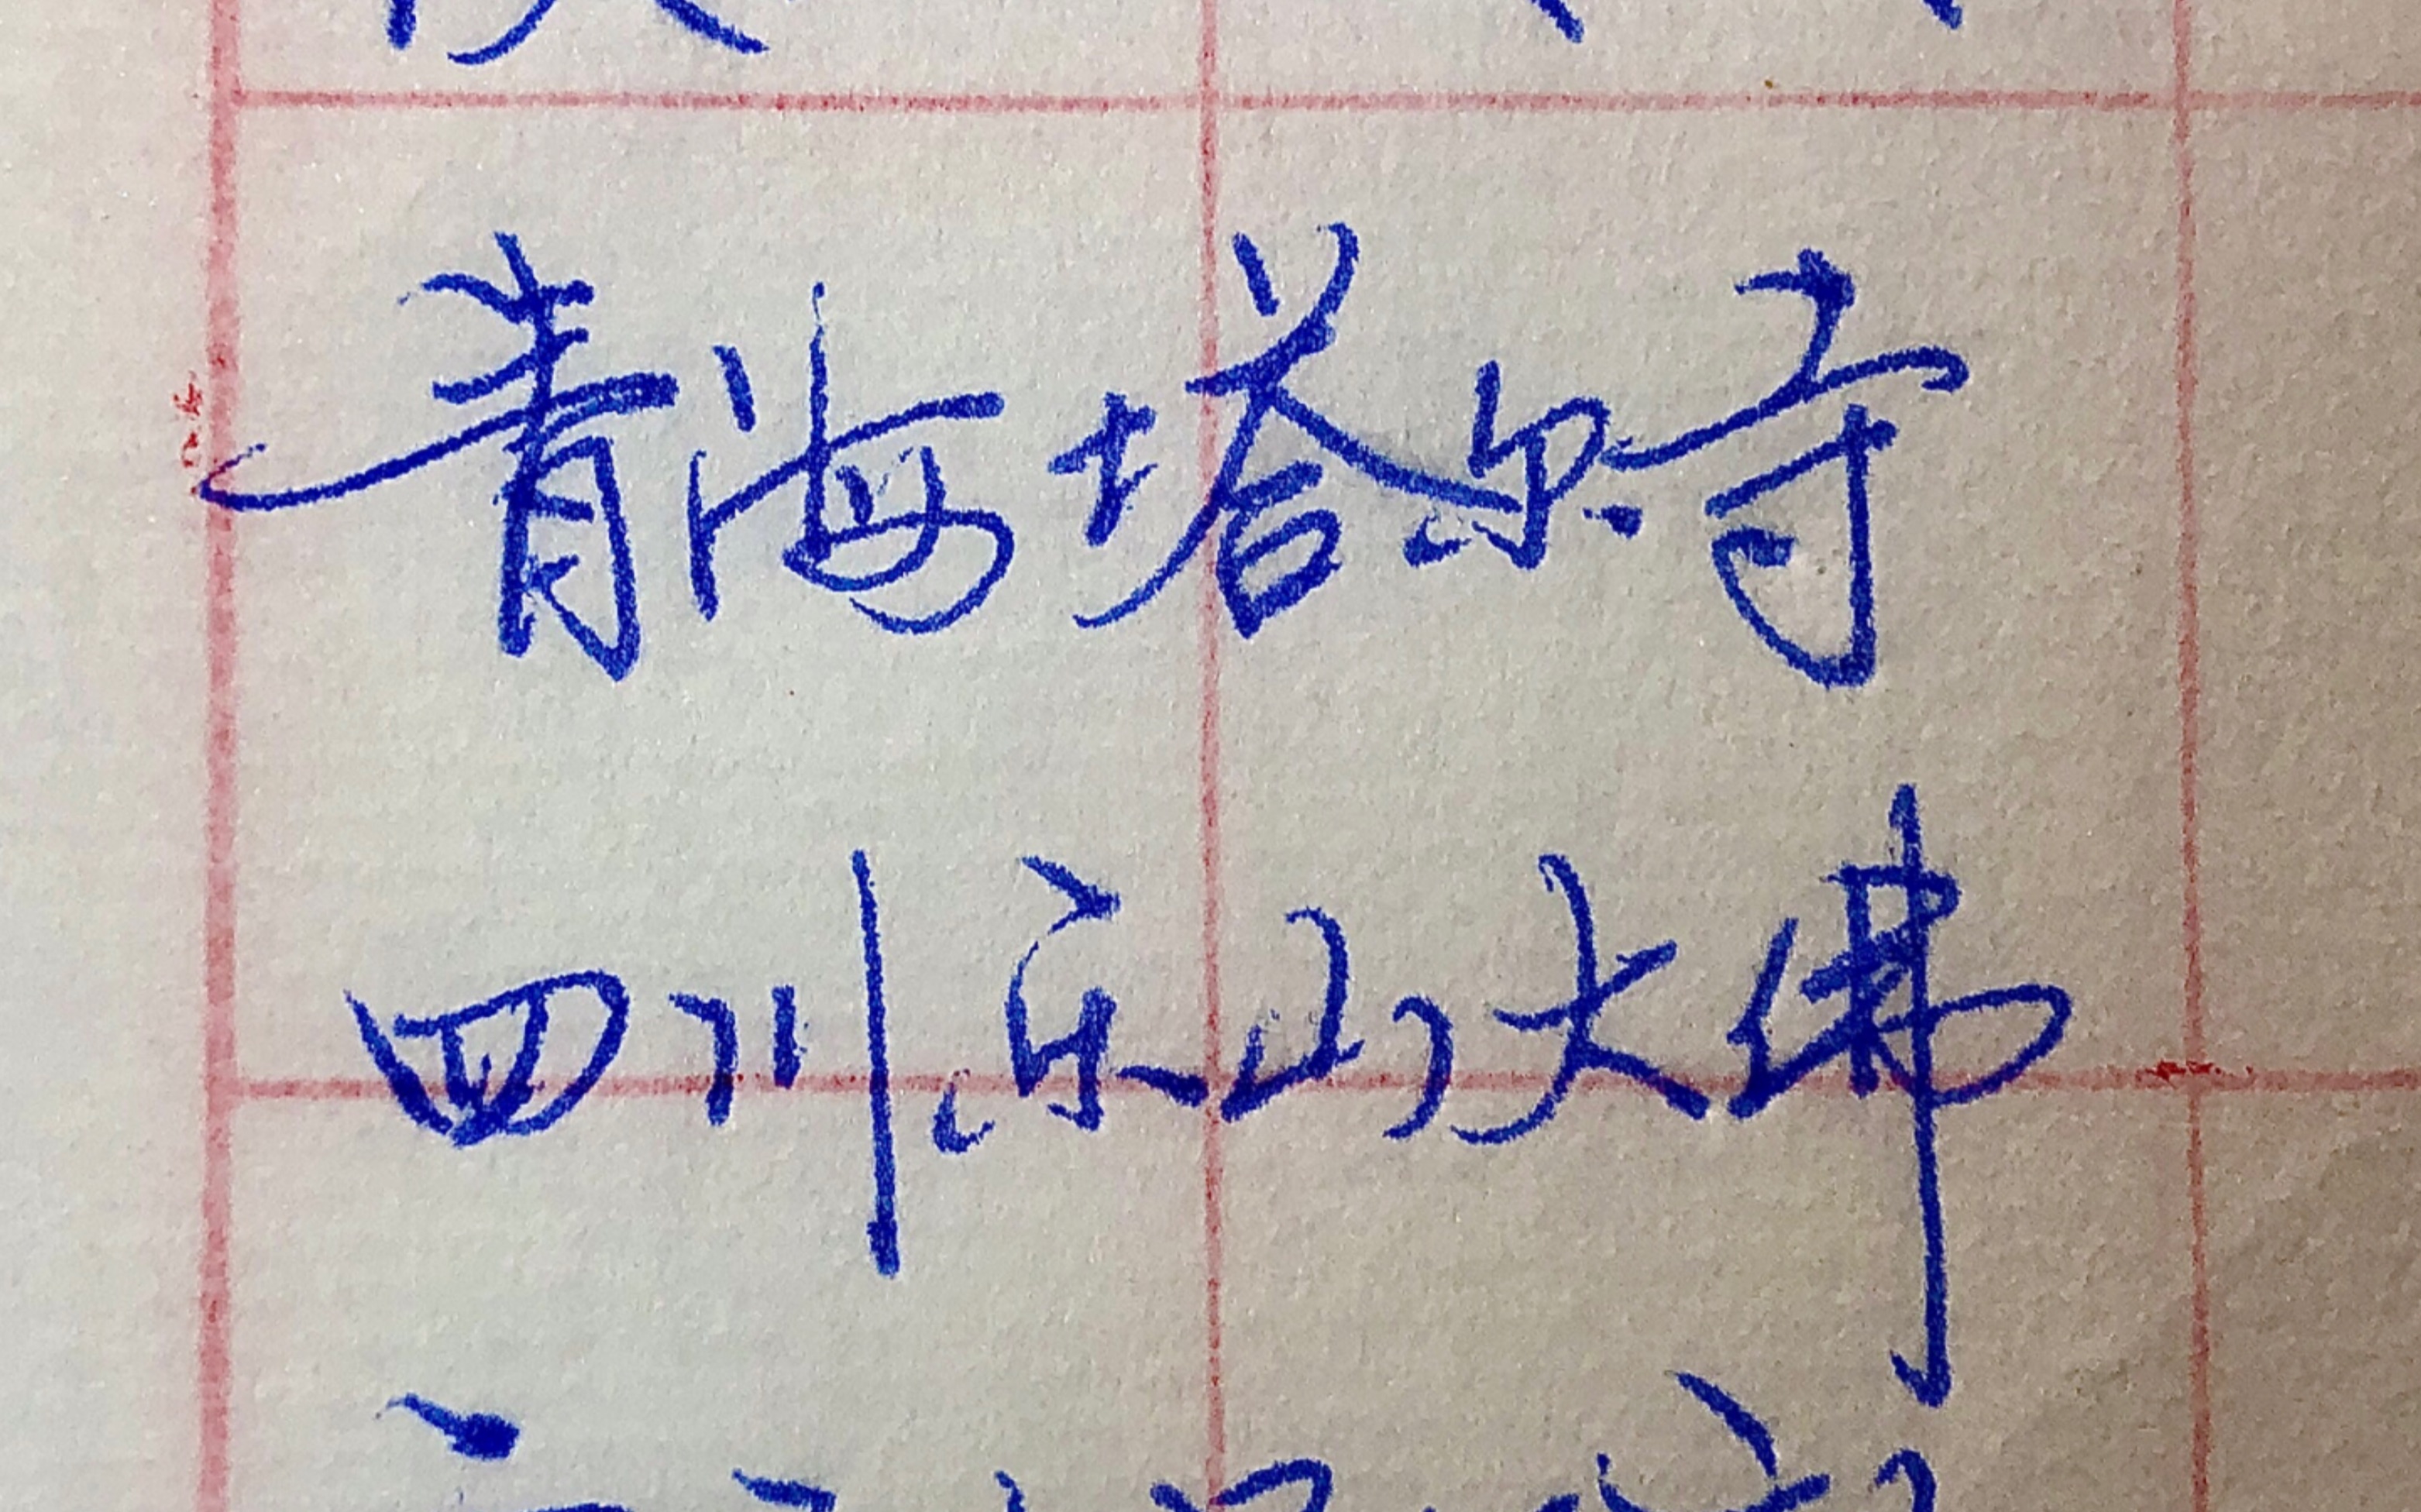 青海塔尔寺
四川乐山大佛